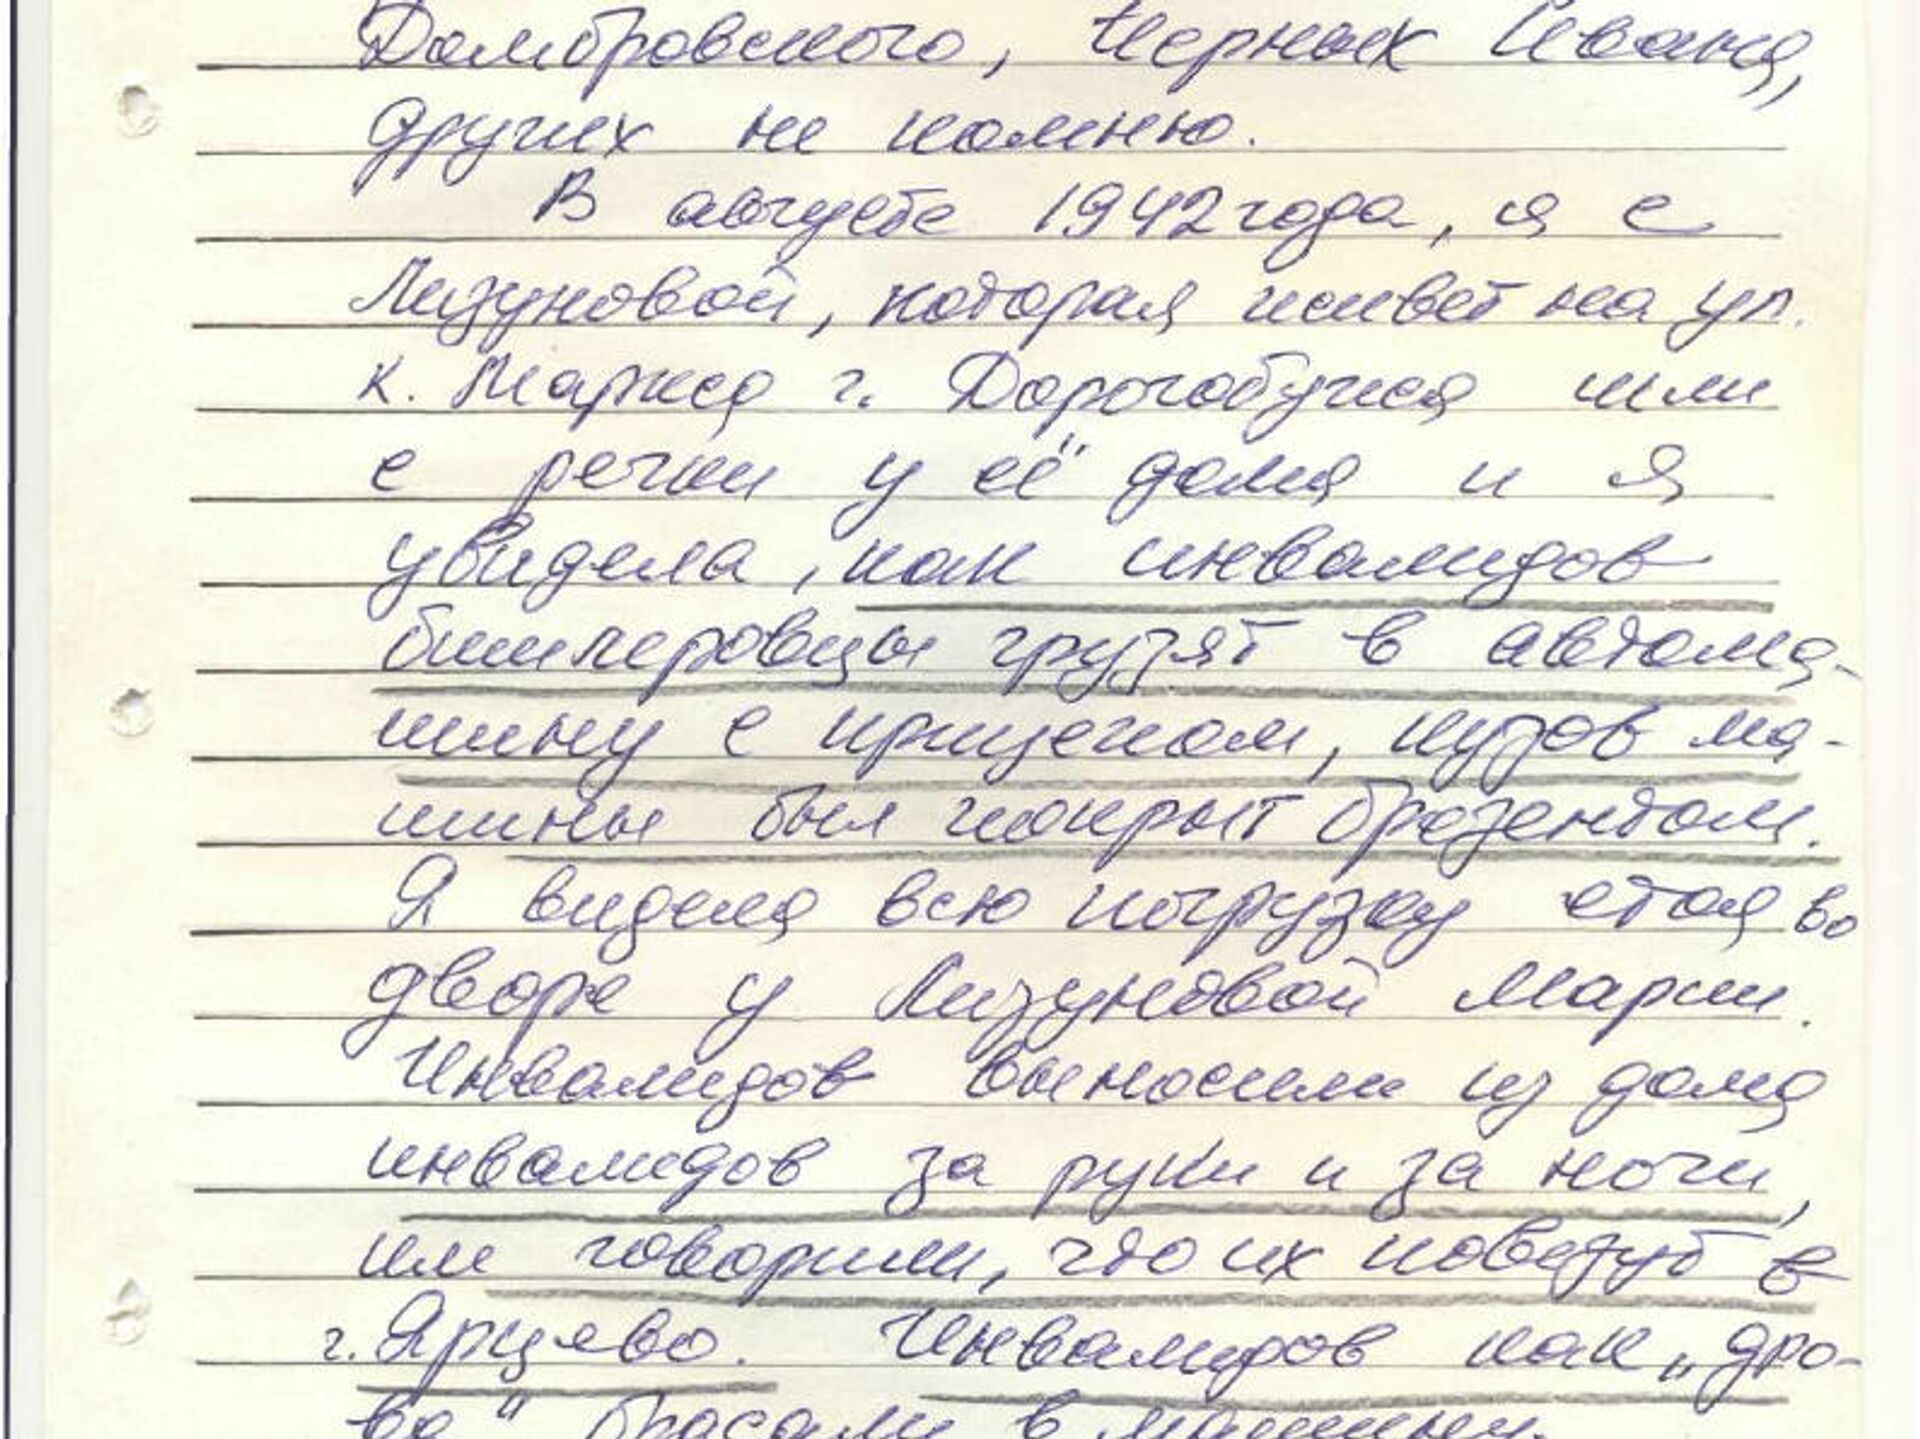 Домбровского, Черных Ивана,
других не помню.
В августе 1942 года, я с
Лизуновой, которая живет на ул.
К. Маркса г. Дорогобужа шли
с речки у её дома и я
увидела, как инвалидов
бишлеровцы грузят в автома-
шину с прицепом, кузов ма-
шины был покрыт брезентом.
Я видела всю погрузку стоя во
дворе у Лизуновой Марии.
Инвалидов выносили из дома
инвалидов за руки и за ноги,
им говорили, что их повезут в
г. Ярцево. Инвалидов как „дро-
ва" бросали в машину.